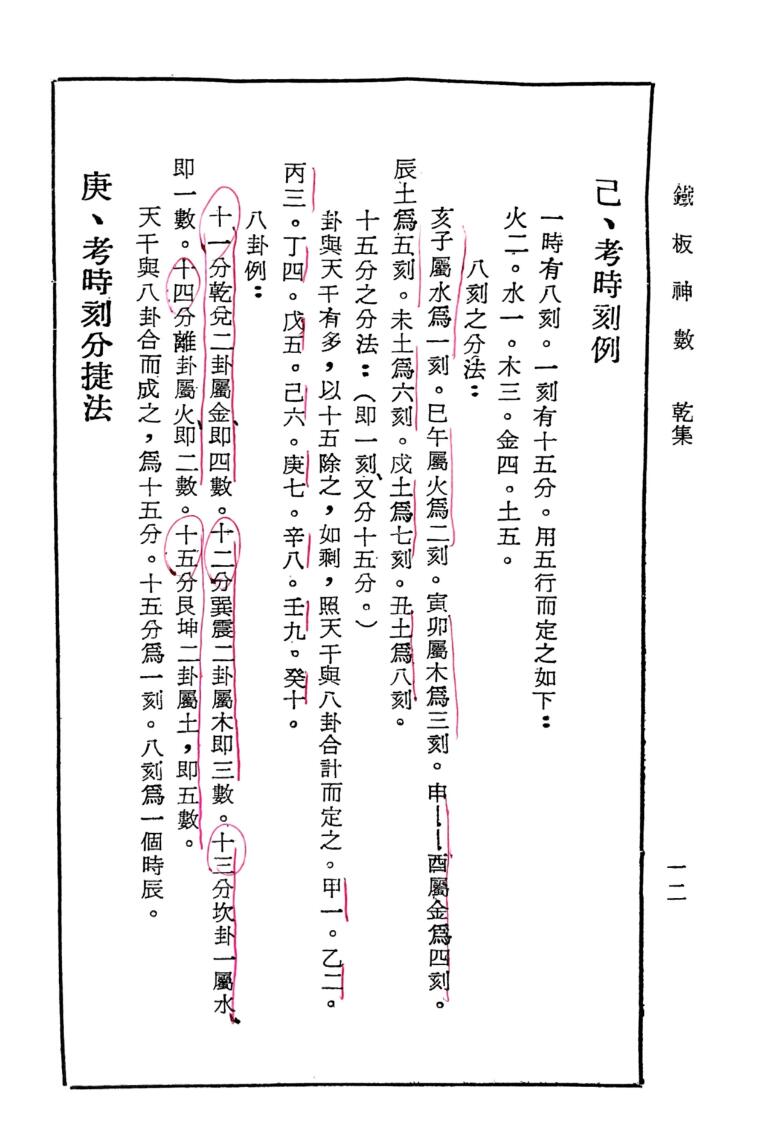 鐵板神數　乾集
一二
己、考時刻例
一時有八刻。一刻有十五分。用五行而定之如下：
火二。水一。木三。金四。土五。
八刻之分法：
亥子屬水爲一刻。巳午屬火爲二刻。寅卯屬木爲三刻。申——酉屬金爲四刻。
辰土爲五刻。未土爲六刻。戌土爲七刻。丑土爲八刻。
十五分之分法：（即一刻、又分十五分。）
卦與天干有多，以十五除之，如剩，照天干與八卦合計而定之。甲一。乙二。
丙三。丁四。戊五。己六。庚七。辛八。壬九。癸十。
八卦例：
十一分乾兌二卦屬金、即四數。十二分巽震二卦屬木即三數。十三分坎卦一屬水、
即一數。十四分離卦屬火、即二數。十五分艮坤二卦屬土，即五數。
天干與八卦合而成之，爲十五分。十五分爲一刻。八刻爲一個時辰。
庚、考時刻分捷法